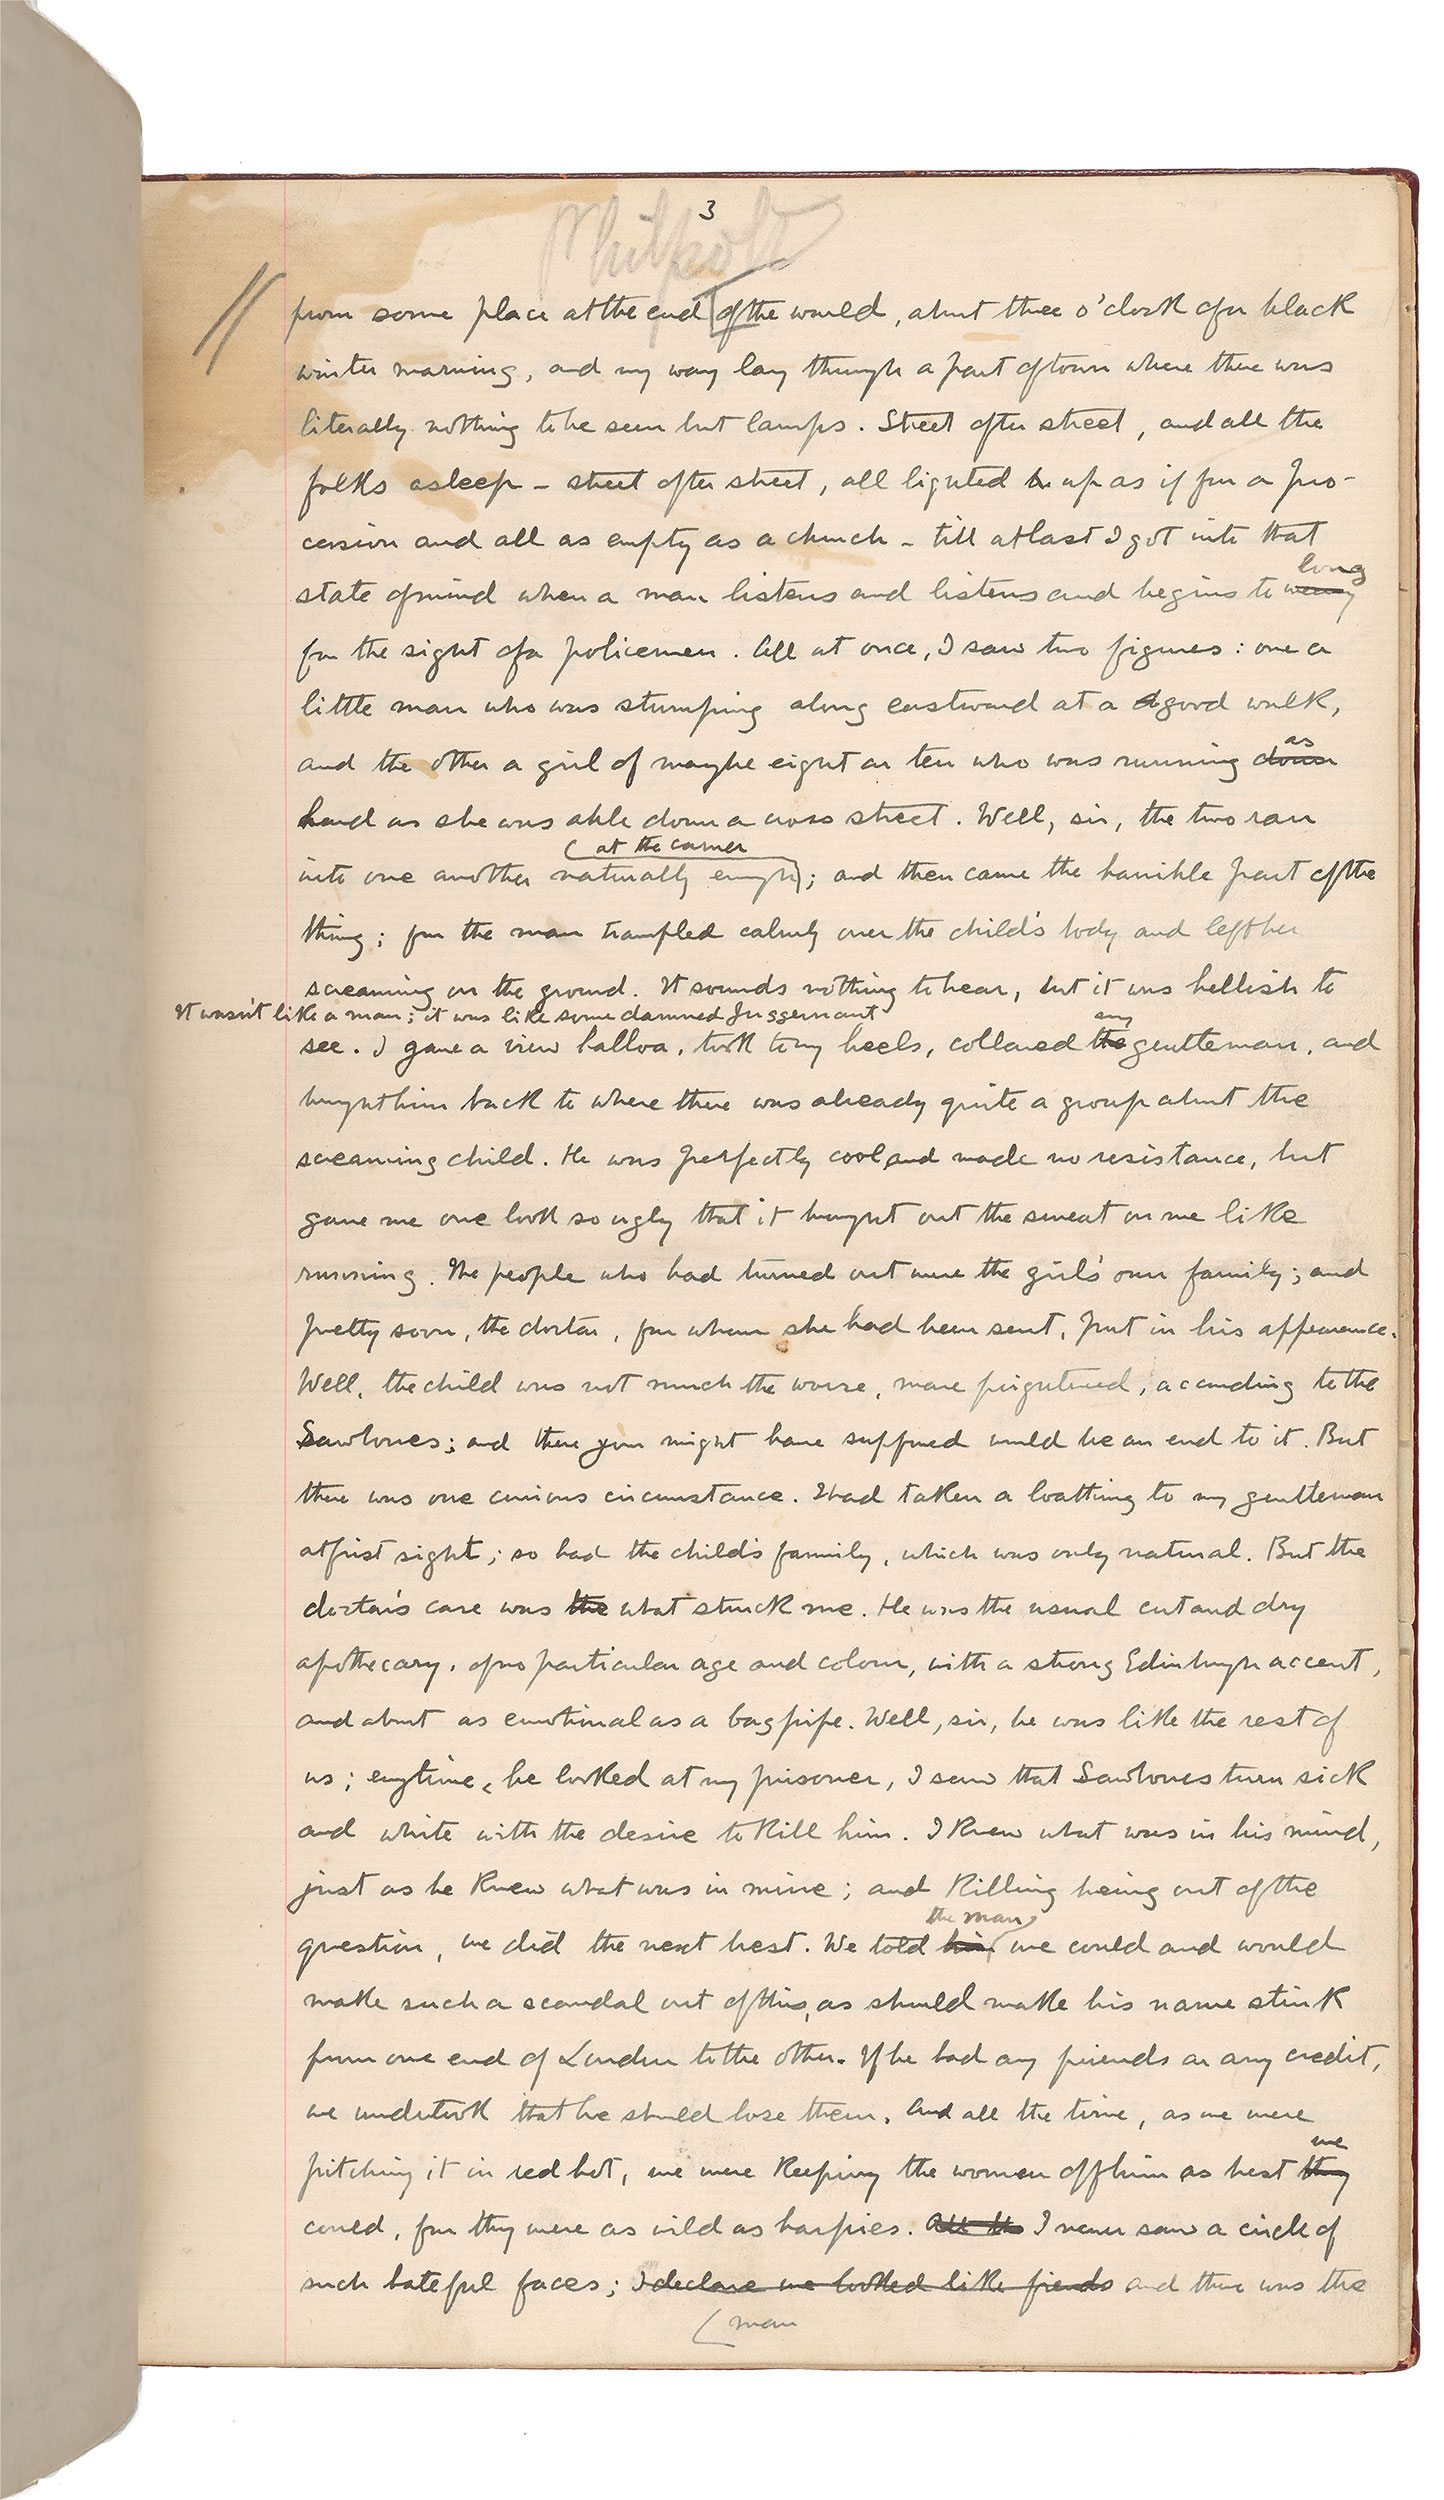 3
Philpott
from some place at the end of the world, about three o'clock of a black
winter morning, and my way lay through a part of town where there was
literally nothing to be seen but lamps. Street after street, and all the
folks asleep - street after street, all lighted up as if for a pro-
cession and all as empty as a church - till at last I got into that
long
state of mind when a man listens and listens and begins to weary
for the sight of a policeman. All at once, I saw two figures: one a
little man who was stumping along eastward at a good walk,
as
and the other a girl of maybe eight or ten who was running down
hard as she was able down a cross street. Well, sir, the two ran
at the corner
into one another naturally enough; and then came the horrible part of the
thing; for the man trampled calmly over the child's body and left her
screaming on the ground. It sounds nothing to hear, but it was hellish to
It wasn't like a man; it was like some damned Juggernaut
my
see. I gave a view halloa, took to my heels, collared the gentleman, and
brought him back to where there was already quite a group about the
screaming child. He was perfectly cool and made no resistance, but
gave me one look so ugly that it brought out the sweat on me like
running. The people who had turned out were the girl's own family; and
pretty soon, the doctor, for whom she had been sent, put in his appearance.
Well, the child was not much the worse, more frightened, according to the
Sawbones; and there you might have supposed would be an end to it. But
there was one curious circumstance. I had taken a loathing to my gentleman
at first sight; so had the child's family, which was only natural. But the
doctor's case was the what struck me. He was the usual cut and dry
apothecary, of no particular age and colour, with a strong Edinburgh accent,
and about as emotional as a bagpipe. Well, sir, he was like the rest of
us; every time he looked at my prisoner, I saw that Sawbones turn sick
and white with the desire to kill him. I knew what was in his mind,
just as he knew what was in mine; and killing being out of the
the man
question, we did the next best. We told him we could and would
make such a scandal out of this, as should make his name stink
from one end of London to the other. If he had any friends or any credit,
we undertook that he should lose them. And all the time, as we were
we
pitching it in red hot, we were keeping the women off him as best they
could, for they were as wild as harpies. All the I never saw a circle of
such hateful faces; I declare we looked like fiends and there was the
(man